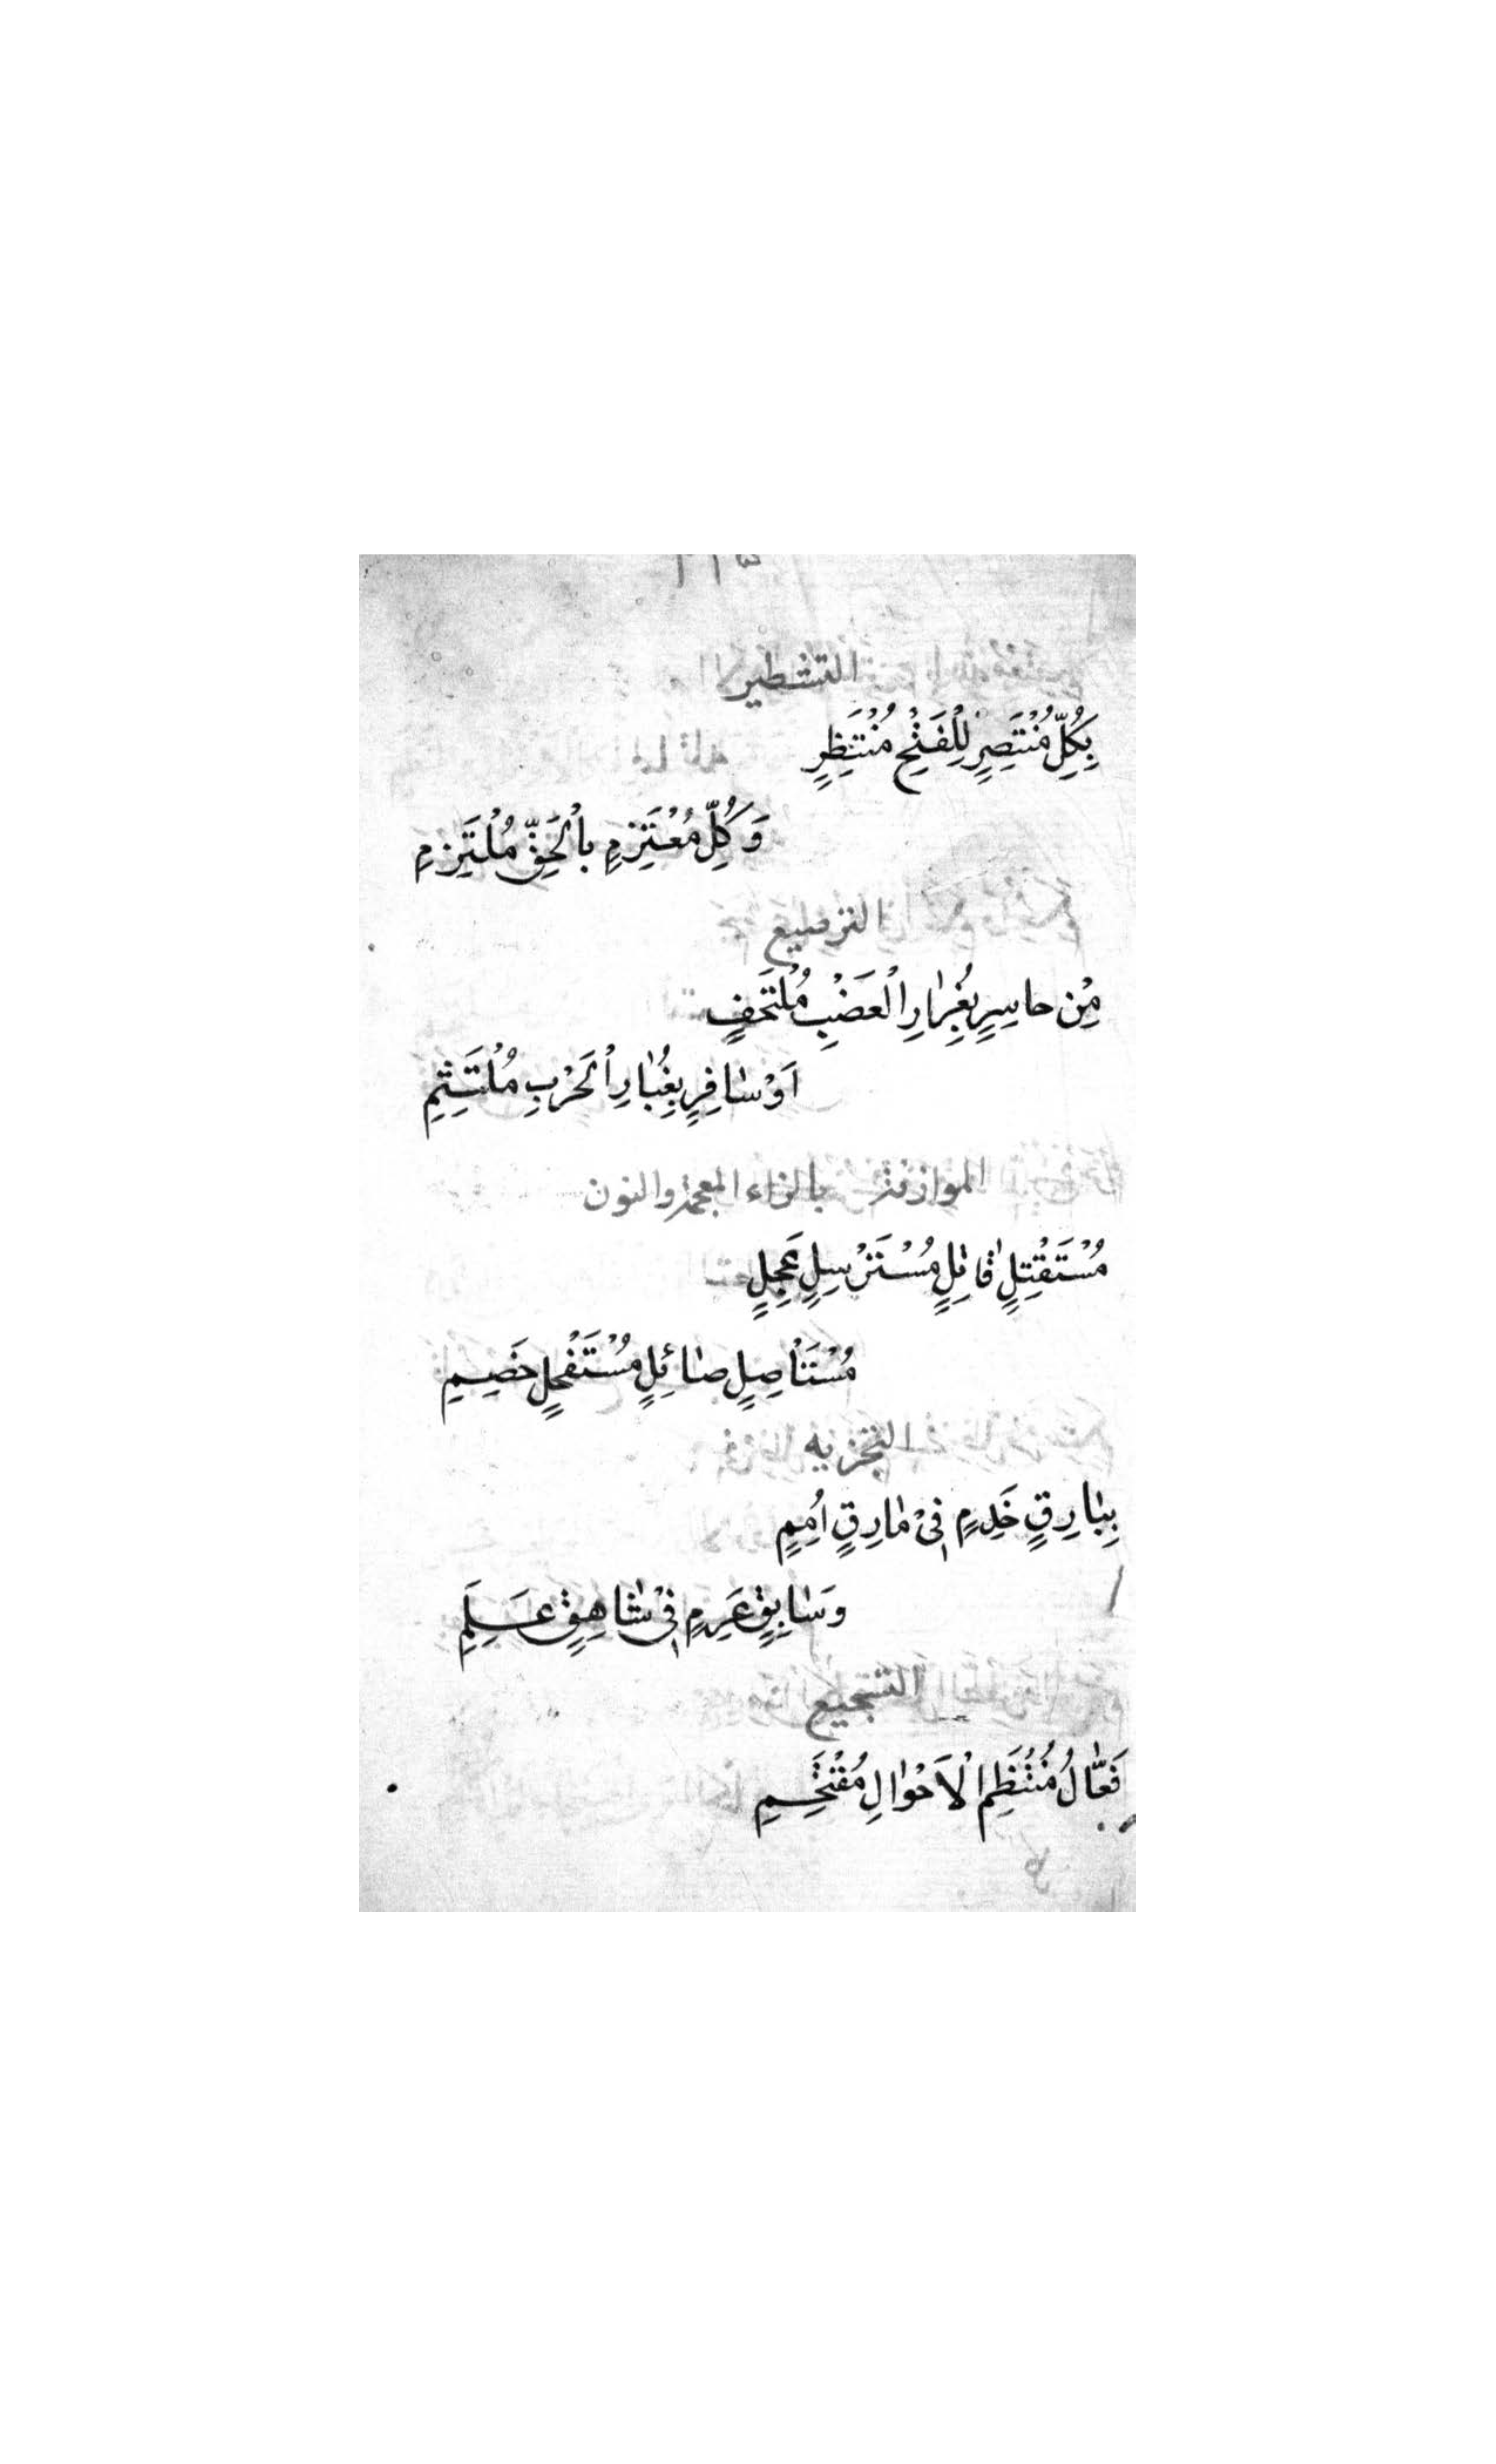 التشطير
بِكُلِّ مُنْتَصِرٍ لِلْفَتْحِ مُنْتَظِرٍ
وَكُلِّ مُعْتَزِمٍ بِالْحَقِّ مُلْتَزِمِ
الترصيع
مِنْ حاسِرٍ بِغِرٰارِ الْعَضْبِ مُلْتَحِفٍ
اَوْ سٰافِرٍ بِغُبٰارِ الْحَرْبِ مُلْتَثِمِ
الموازنة بالزاء المعجمة والنون
مُسْتَقْتِلٍ قٰاتِلٍ مُسْتَرْسِلٍ عَجِلٍ
مُسْتَأْصِلٍ صٰائِلٍ مُسْتَفْحِلٍ خَصِمِ
التجزيه
بِبٰارِقٍ خَذِمٍ فِيْ مٰارِقٍ اُمَمٍ
وَسٰابِقٍ عَرِمٍ فِيْ شٰاهِقٍ عَلَمِ
التسجيع
فَعّٰالُ مُنْتَظِمِ الْاَحْوٰالِ مُقْتَحِمِ